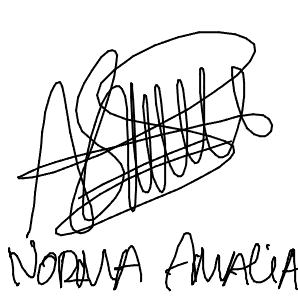 NORMA AMALiA